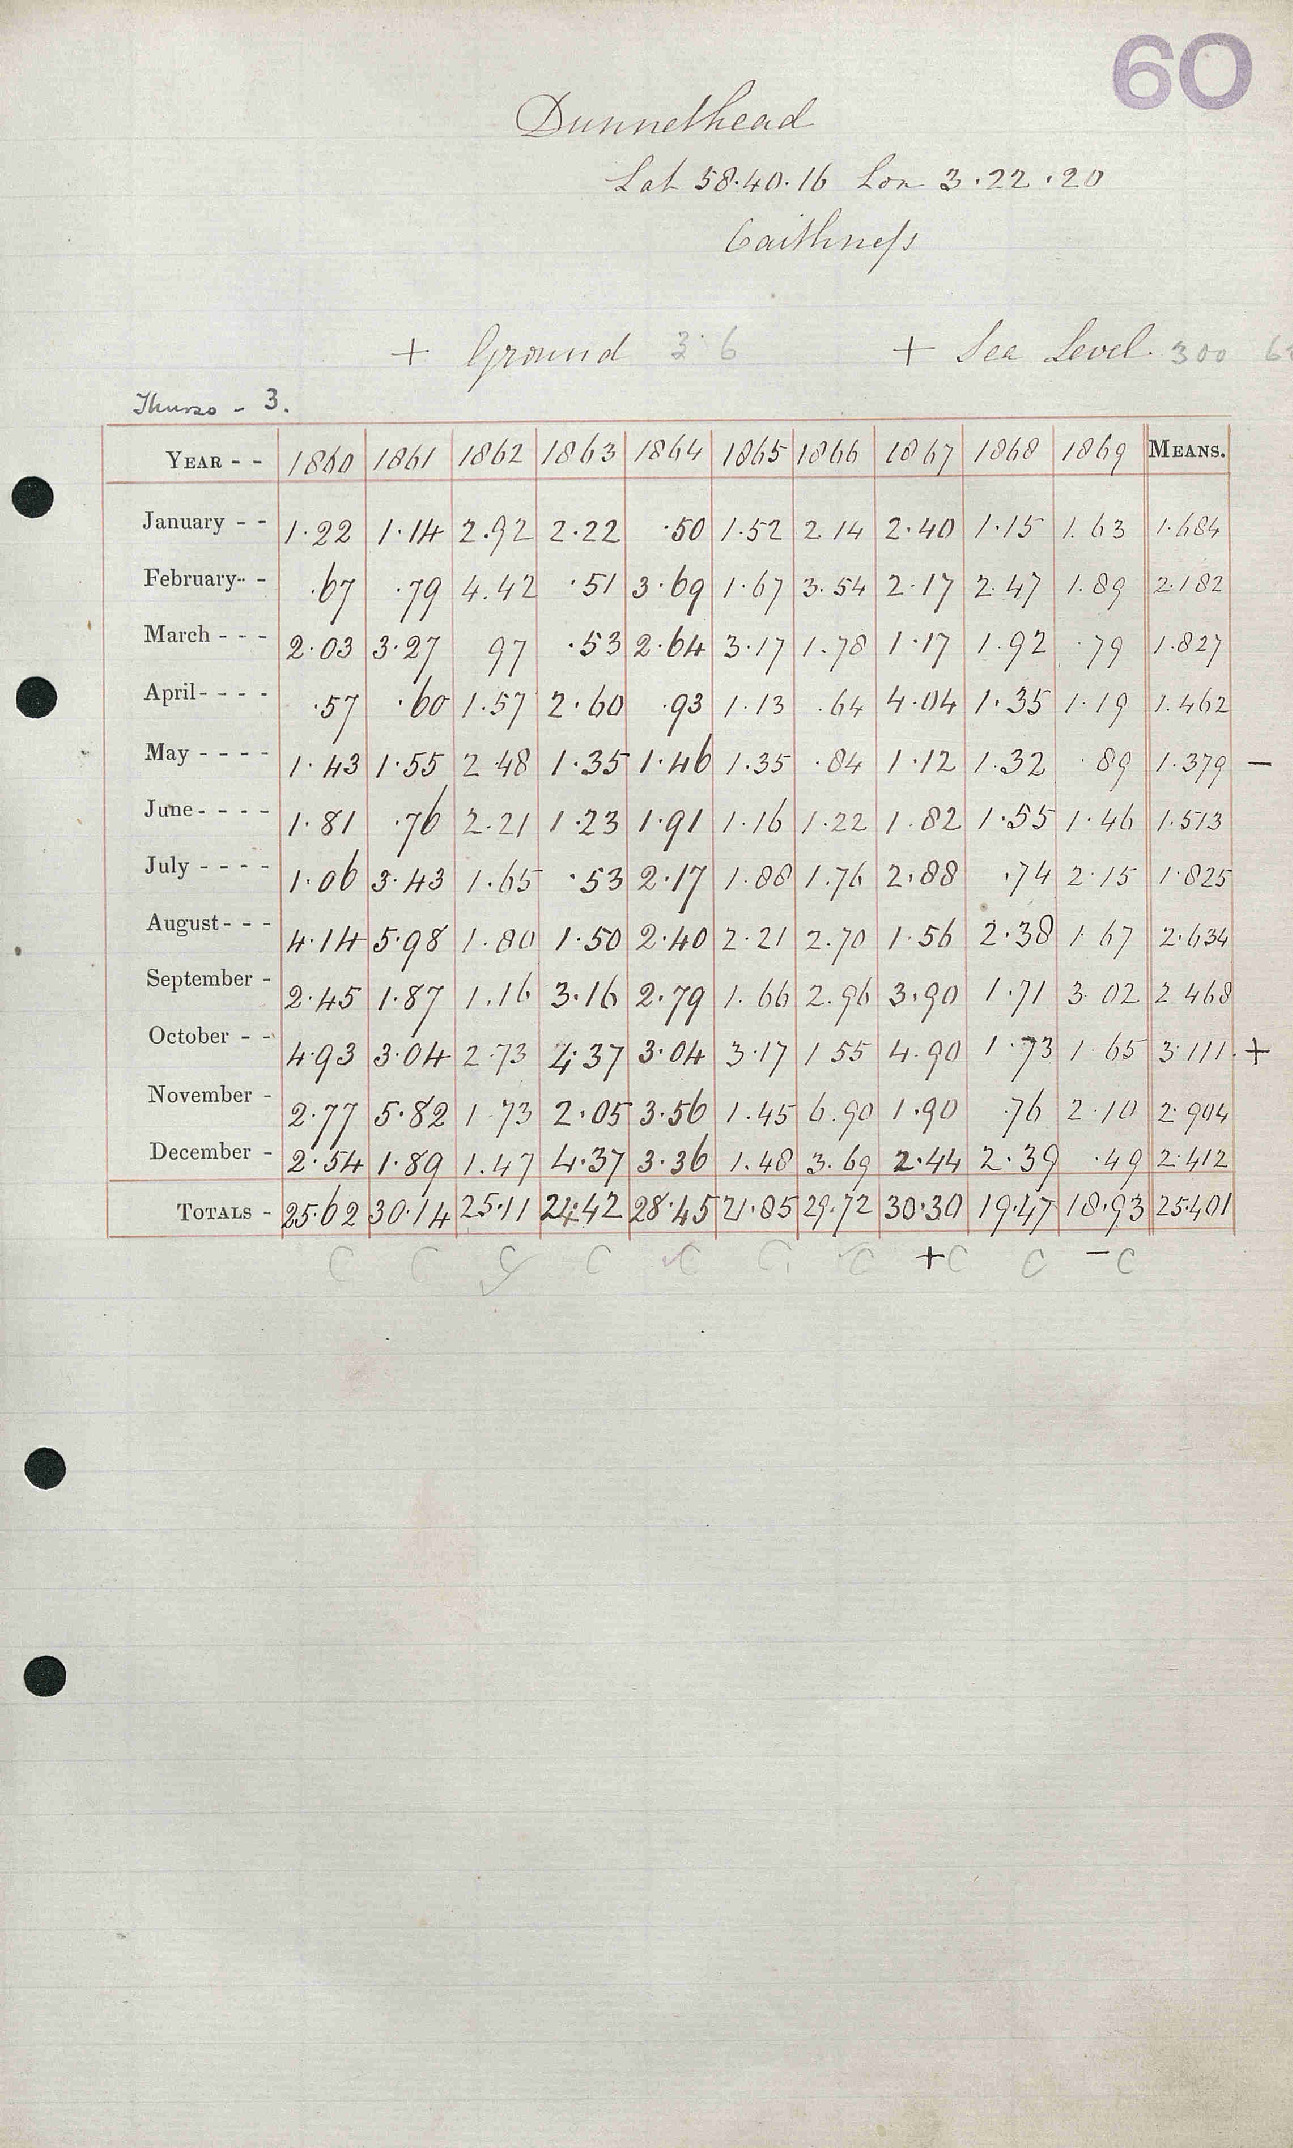 60
Dunnethead
Lat 58.40.16 Lon 3.22.20
Caithness
+ Ground 3.6 + Sea Level 300
Thurso - 3.
YEAR - - 1860 1861 1862 1863 1864 1865 1866 1867 1868 1869 MEANS.
January - - 1.22 1.14 2.92 2.22 .50 1.52 2.14 2.40 1.15 1.63 1.684
February - - .67 .79 4.42 .51 3.69 1.67 3.54 2.17 2.47 1.89 2.182
March - - - 2.03 3.27 97 .53 2.64 3.17 1.78 1.17 1.92 .79 1.827
April - - - - .57 .60 1.57 2.60 .93 1.13 .64 4.04 1.35 1.19 1.462
May - - - - 1.43 1.55 2.48 1.35 1.46 1.35 .84 1.12 1.32 .89 1.379 —
June - - - - 1.81 .76 2.21 1.23 1.91 1.16 1.22 1.82 1.55 1.46 1.513
July - - - - 1.06 3.43 1.65 .53 2.17 1.88 1.76 2.88 .74 2.15 1.825
August - - - 4.14 5.98 1.80 1.50 2.40 2.21 2.70 1.56 2.38 1.67 2.634
September - 2.45 1.87 1.16 3.16 2.79 1.66 2.96 3.90 1.71 3.02 2.468
October - - 4.93 3.04 2.73 4.37 3.04 3.17 1.55 4.90 1.73 1.65 3.111 +
November - 2.77 5.82 1.73 2.05 3.56 1.45 6.90 1.90 .76 2.10 2.904
December - 2.54 1.89 1.47 4.37 3.36 1.48 3.69 2.44 2.39 .49 2.412
TOTALS - 25.62 30.14 25.11 24.42 28.45 21.85 29.72 30.30 19.47 18.93 25.401
C C C C C C C +C C -C